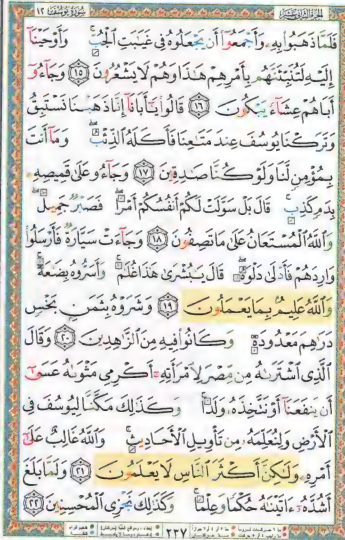 سُورَةُ يُوسُفَ ١٢
فَلَمَّا ذَهَبُوا۟ بِهِۦ وَأَجْمَعُوٓا۟ أَن يَجْعَلُوهُ فِى غَيَٰبَتِ ٱلْجُبِّ ۚ وَأَوْحَيْنَآ
إِلَيْهِ لَتُنَبِّئَنَّهُم بِأَمْرِهِمْ هَٰذَا وَهُمْ لَا يَشْعُرُونَ ١٥ وَجَآءُوٓ
أَبَاهُمْ عِشَآءً يَبْكُونَ ١٦ قَالُوا۟ يَٰٓأَبَانَآ إِنَّا ذَهَبْنَا نَسْتَبِقُ
وَتَرَكْنَا يُوسُفَ عِندَ مَتَٰعِنَا فَأَكَلَهُ ٱلذِّئْبُ ۖ وَمَآ أَنتَ
بِمُؤْمِنٍ لَّنَا وَلَوْ كُنَّا صَٰدِقِينَ ١٧ وَجَآءُو عَلَىٰ قَمِيصِهِۦ
بِدَمٍ كَذِبٍ ۚ قَالَ بَلْ سَوَّلَتْ لَكُمْ أَنفُسُكُمْ أَمْرًا ۖ فَصَبْرٌ جَمِيلٌ ۖ
وَٱللَّهُ ٱلْمُسْتَعَانُ عَلَىٰ مَا تَصِفُونَ ١٨ وَجَآءَتْ سَيَّارَةٌ فَأَرْسَلُوا۟
وَارِدَهُمْ فَأَدْلَىٰ دَلْوَهُۥ ۖ قَالَ يَٰبُشْرَىٰ هَٰذَا غُلَٰمٌ ۚ وَأَسَرُّوهُ بِضَٰعَةً ۚ
وَٱللَّهُ عَلِيمٌۢ بِمَا يَعْمَلُونَ ١٩ وَشَرَوْهُ بِثَمَنٍۭ بَخْسٍ
دَرَٰهِمَ مَعْدُودَةٍ وَكَانُوا۟ فِيهِ مِنَ ٱلزَّٰهِدِينَ ٢٠ وَقَالَ
ٱلَّذِى ٱشْتَرَىٰهُ مِن مِّصْرَ لِٱمْرَأَتِهِۦٓ أَكْرِمِى مَثْوَىٰهُ عَسَىٰٓ
أَن يَنفَعَنَآ أَوْ نَتَّخِذَهُۥ وَلَدًا ۚ وَكَذَٰلِكَ مَكَّنَّا لِيُوسُفَ فِى
ٱلْأَرْضِ وَلِنُعَلِّمَهُۥ مِن تَأْوِيلِ ٱلْأَحَادِيثِ ۚ وَٱللَّهُ غَالِبٌ عَلَىٰٓ
أَمْرِهِۦ وَلَٰكِنَّ أَكْثَرَ ٱلنَّاسِ لَا يَعْلَمُونَ ٢١ وَلَمَّا بَلَغَ
أَشُدَّهُۥٓ ءَاتَيْنَٰهُ حُكْمًا وَعِلْمًا ۚ وَكَذَٰلِكَ نَجْزِى ٱلْمُحْسِنِينَ ٢٢
٢٣٧